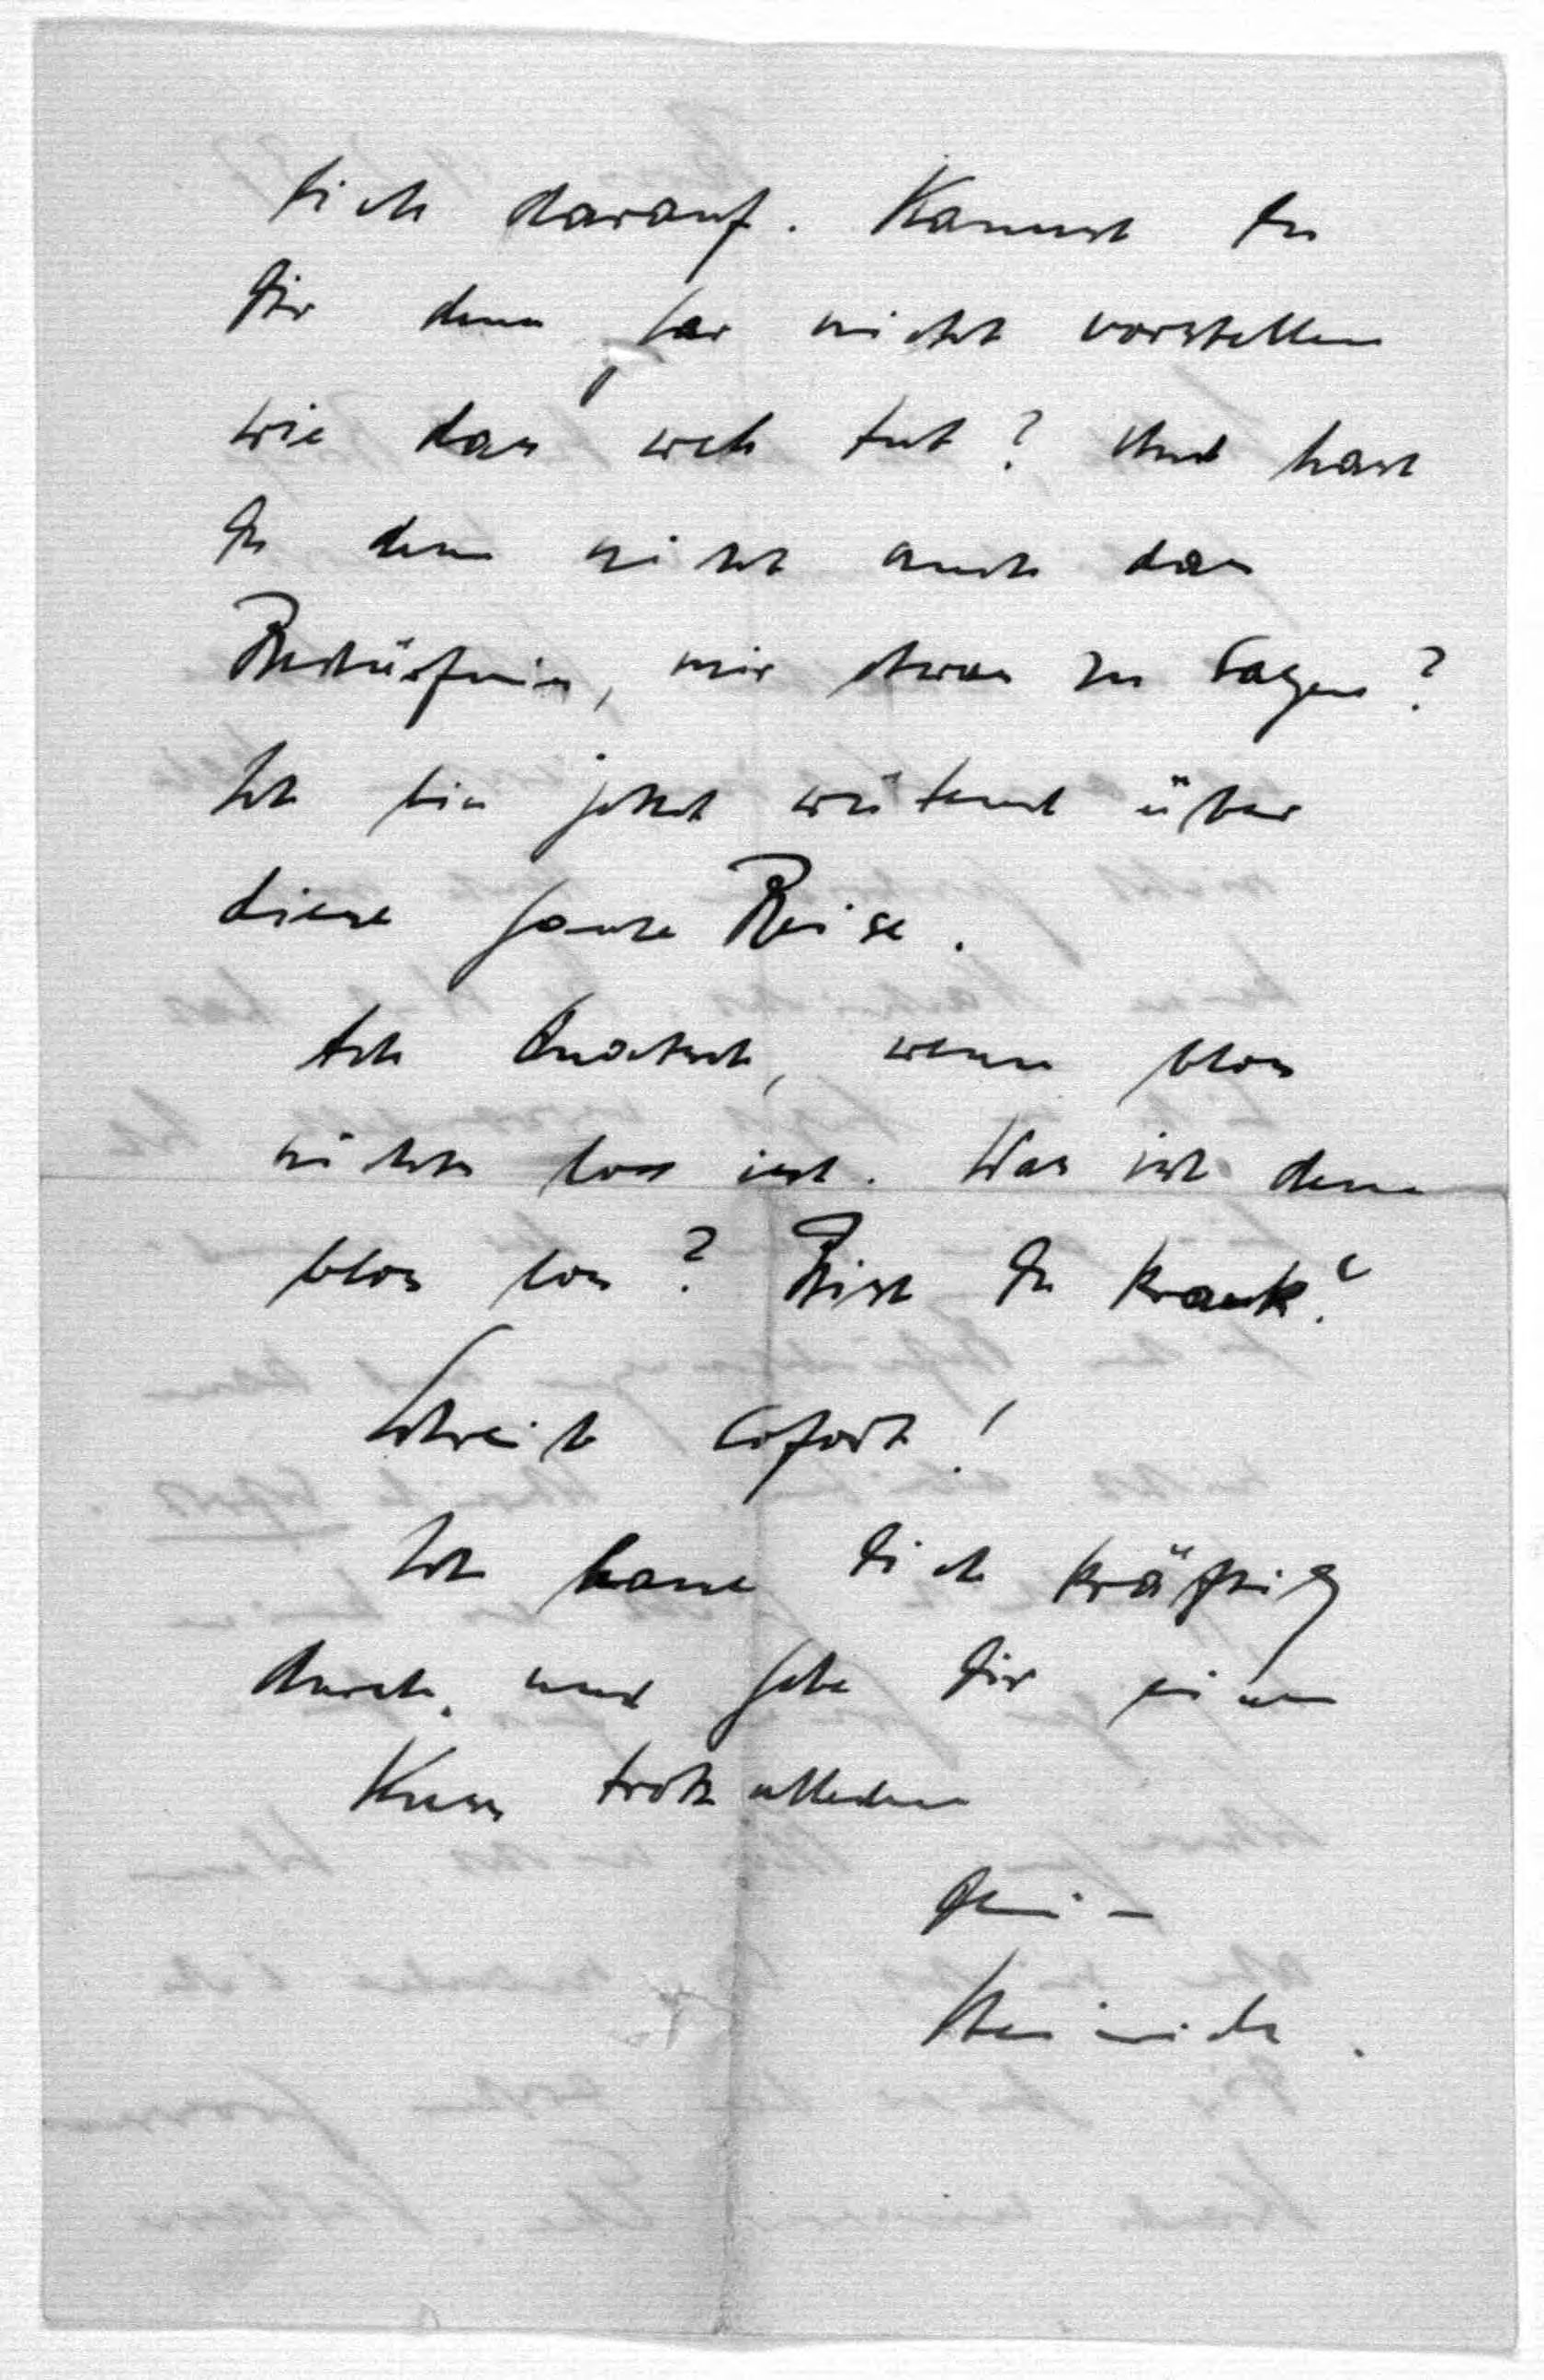 Dich darauf. Kannst Du
Dir denn gar nicht vorstellen
wie das weh tut? Und hast
Du denn nicht auch das
Bedürfnis, mir etwas zu sagen?
Ich bin jetzt wütend über
diese ganze Reise.
Ach Quatsch, wenn blos
nichts los ist. Was ist denn
blos los? Bist Du krank?
Schreib sofort!
Ich haue Dich kräftig
durch, und gebe Dir einen
Kuss trotz alledem
Dein
Heinrich.